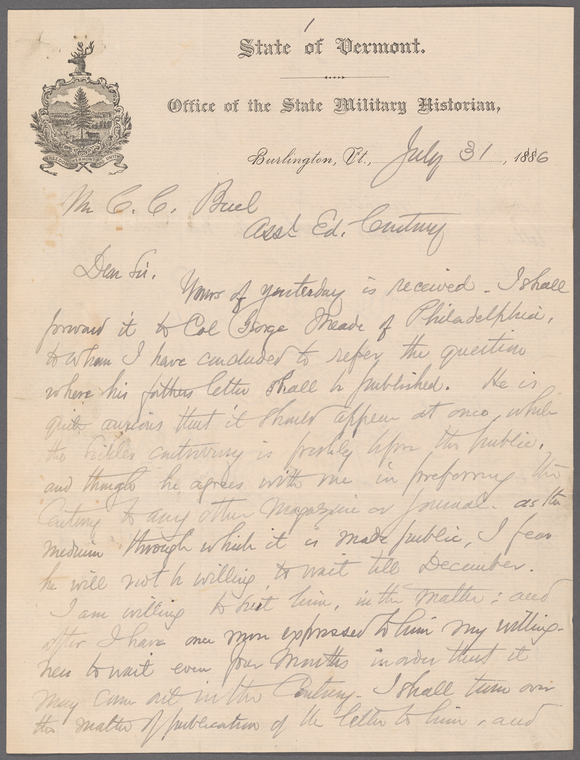 1
State of Vermont.
Office of the State Military Historian,
Burlington, Vt., July 31, 1886
Mr C. C. Buel
Asst Ed. Century
Dear Sir.
Yours of yesterday is received - I shall
forward it to Col George Meade of Philadelphia,
to whom I have concluded to refer the question
where his fathers letter shall be published. He is
quite anxious that it should appear at once, while
the Sickles controversy is freshly before the public,
and though he agrees with me in preferring the
Century to any other Magazine or Journal - as the
medium through which it is made public, I fear
he will not be willing to wait till December.
I am willing to him, in the matter; and
after I have once more expressed to him my willing-
ness to wait even four months in order that it
may come out in the Century - I shall turn over
the matter of publication of the letter to him, and